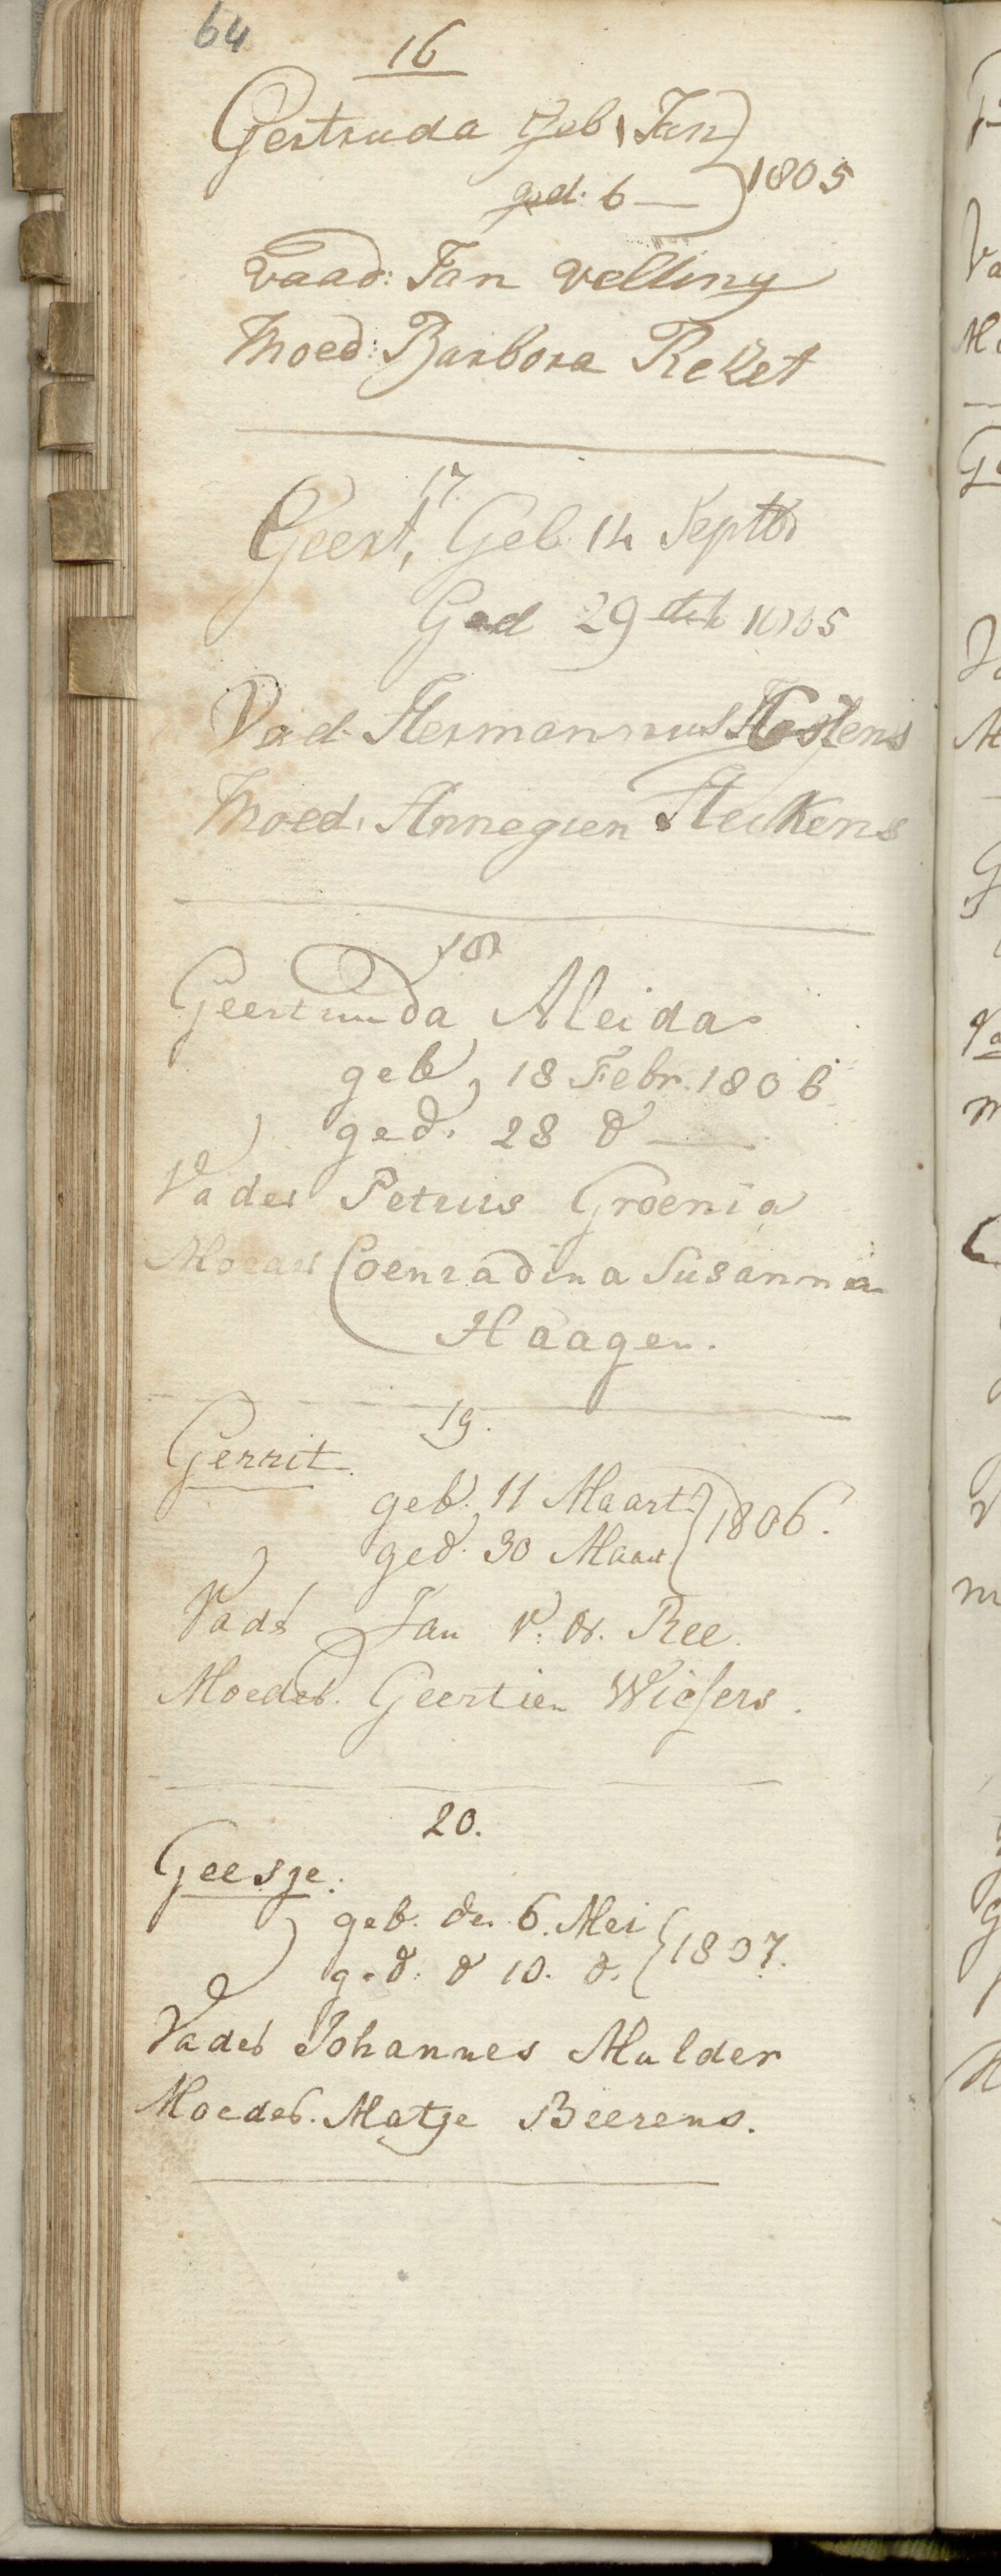 64
16
Gertruda Geb 1 Jan
ged. 6 — 1805
Vaad: Jan Velting
Moed: Barbora Reket
17.
Geert, Geb. 14 Septbr
Ged 29 dito 1805
Vad. Hermannus
Moed. Annegien
18
Geertruida Aleida
geb, 18 Febr. 1806
ged. 28 d —
Vader Petrus Groenia
Moeder Coenradina Susanna
Haagen.
19.
Gerrit.
geb. 11 Maart
ged. 30 Maart 1806.
Vadr Jan v. dr. Ree.
Moeder. Geertien Wiefers.
20.
Geesje.
geb. den 6. Mei
ged. d 10. d. 1807.
Vader Johannes Mulder
Moeder. Matje Beerens.